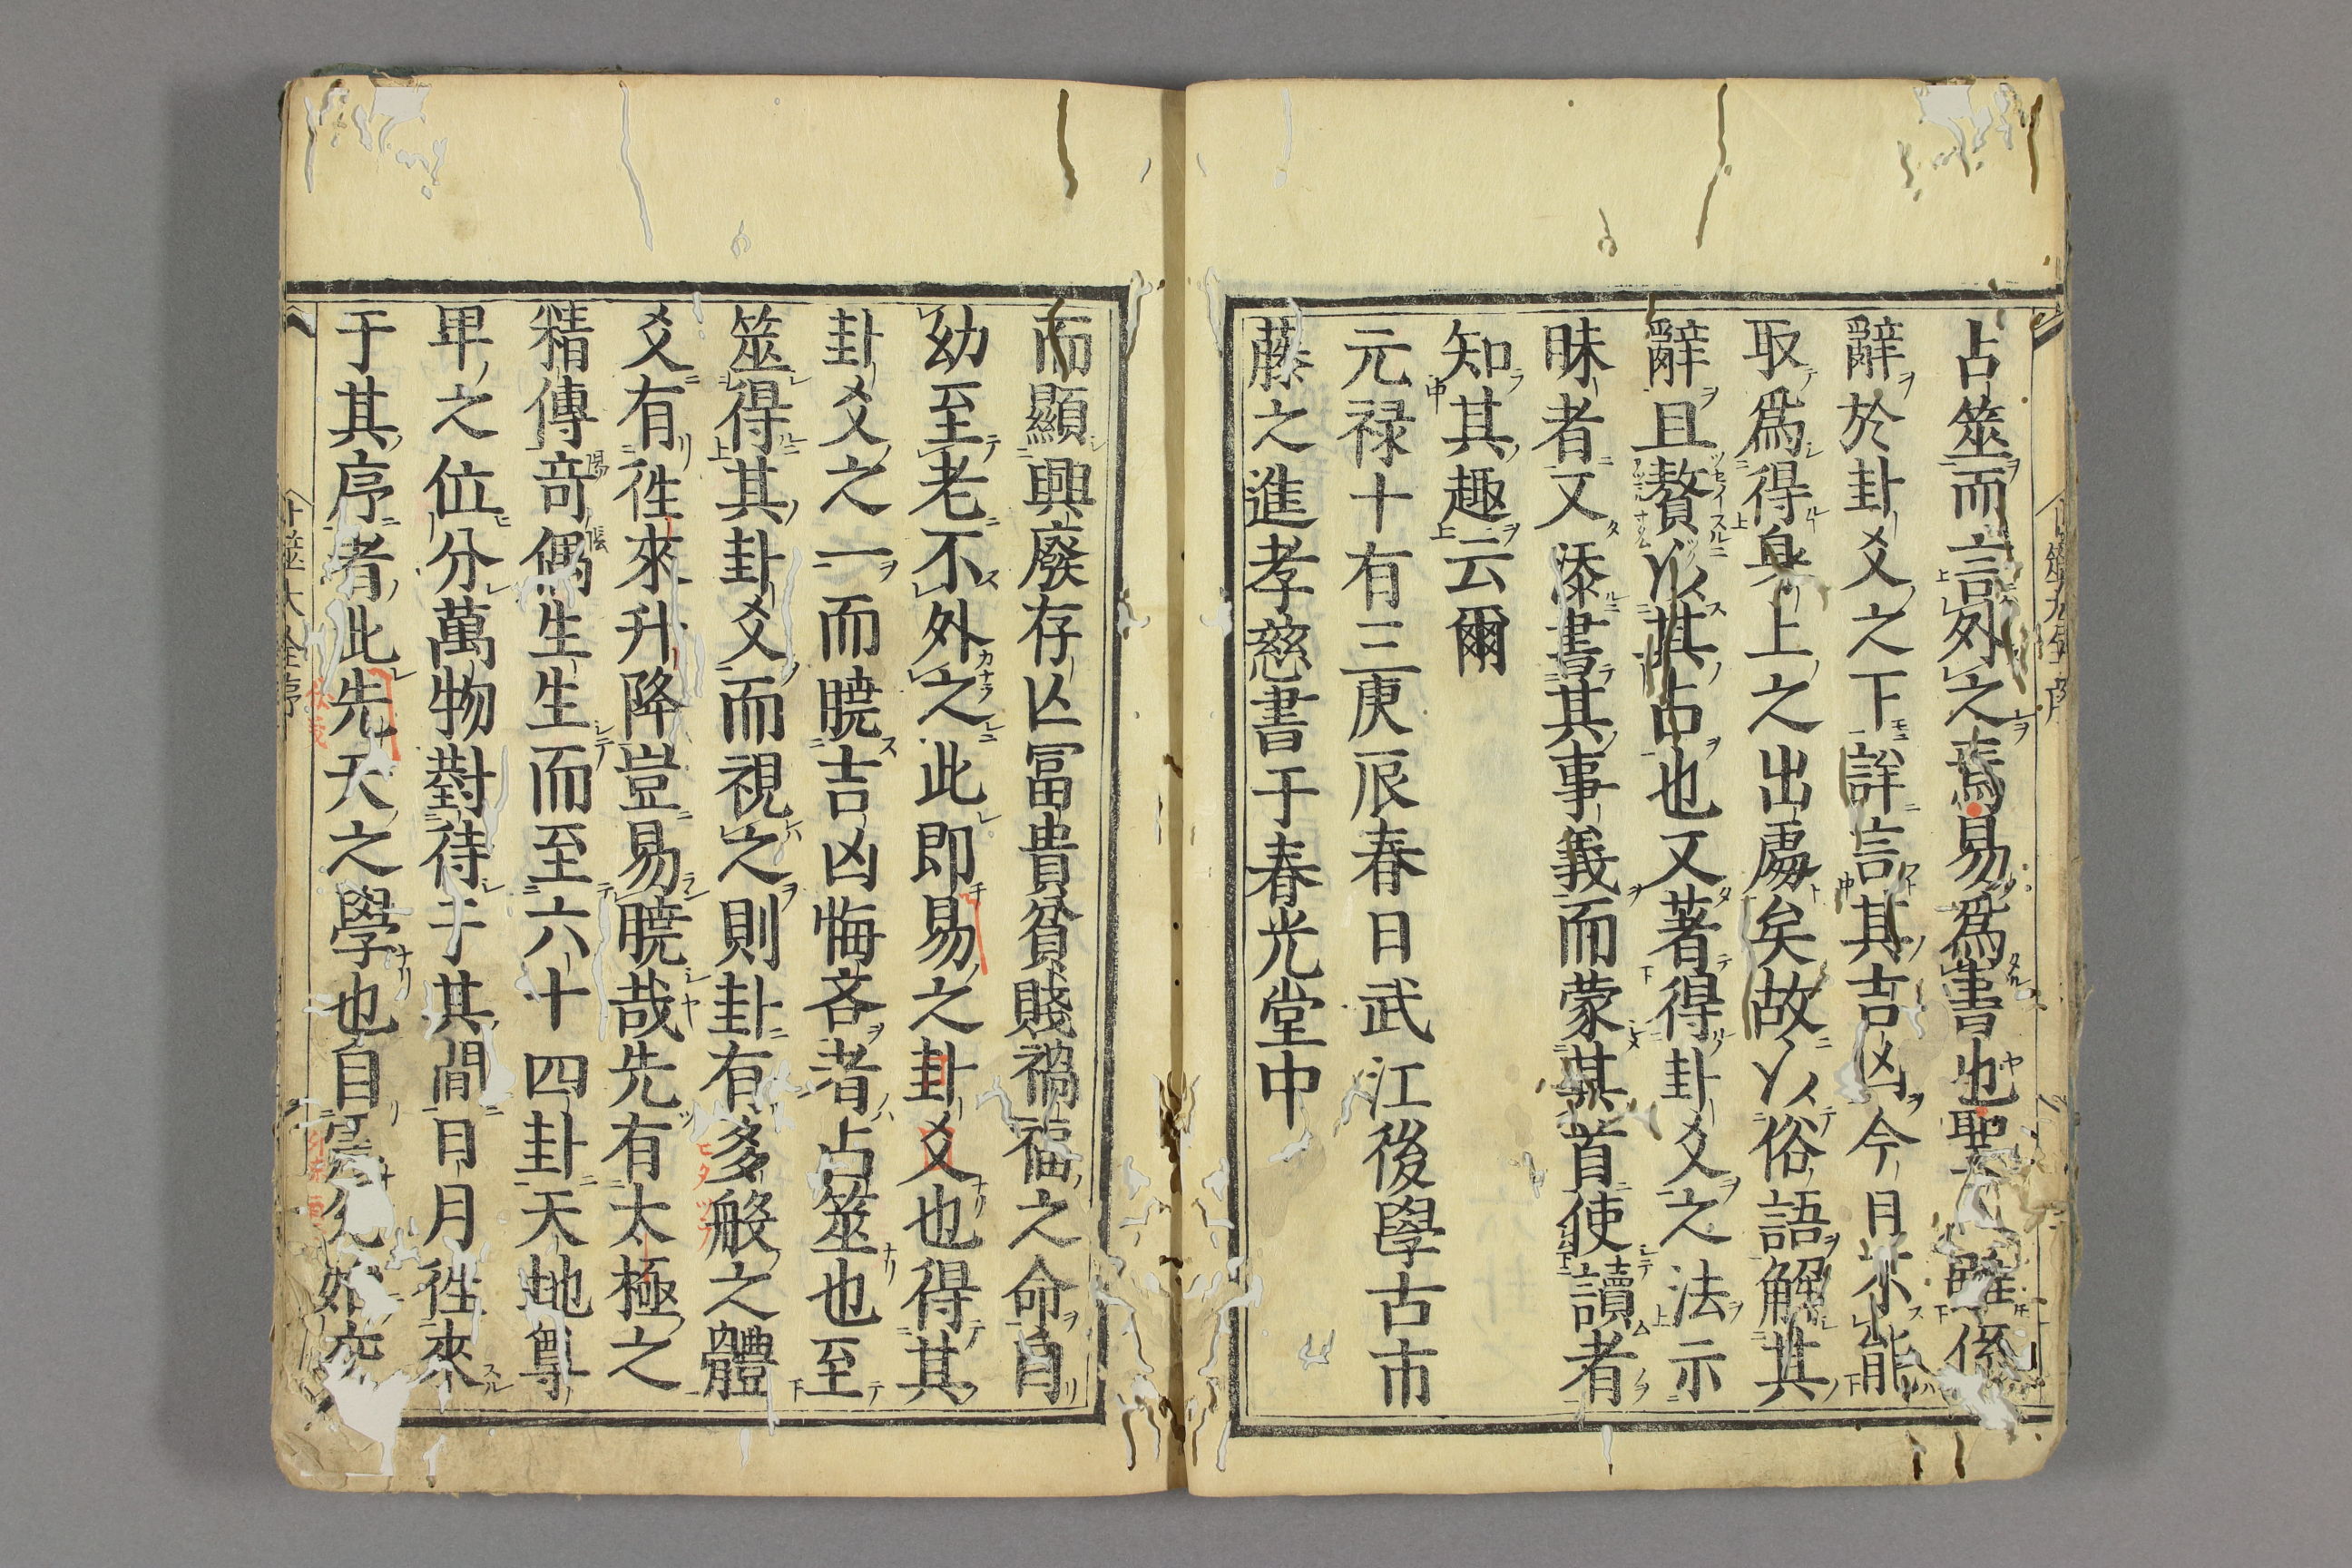 占筮而言外之焉易爲書也聖 雖係
辭於卦爻之下詳言其吉凶今日不能
取爲得身上之出處矣故以俗語解其
辭且贅以其占也又著得卦爻之法示
昧者又添書其事義而蒙其首使讀者
知其趣云爾
元禄十有三庚辰春日武江後學古市
藤之進孝慈書于春光堂中
而顯興廢存亾冨貴貧賤禍福之命自
幼至老不外之此即易之卦爻也得其
卦爻之一而曉吉凶悔吝者占筮也至
筮得其卦爻而視之則卦有多般之體
爻有徃來升降豈易曉哉先有太極之
精傳竒偶生生而至六十四卦天地尊
卑之位分萬物對待于其間日月徃來
于其序者此先天之學也自